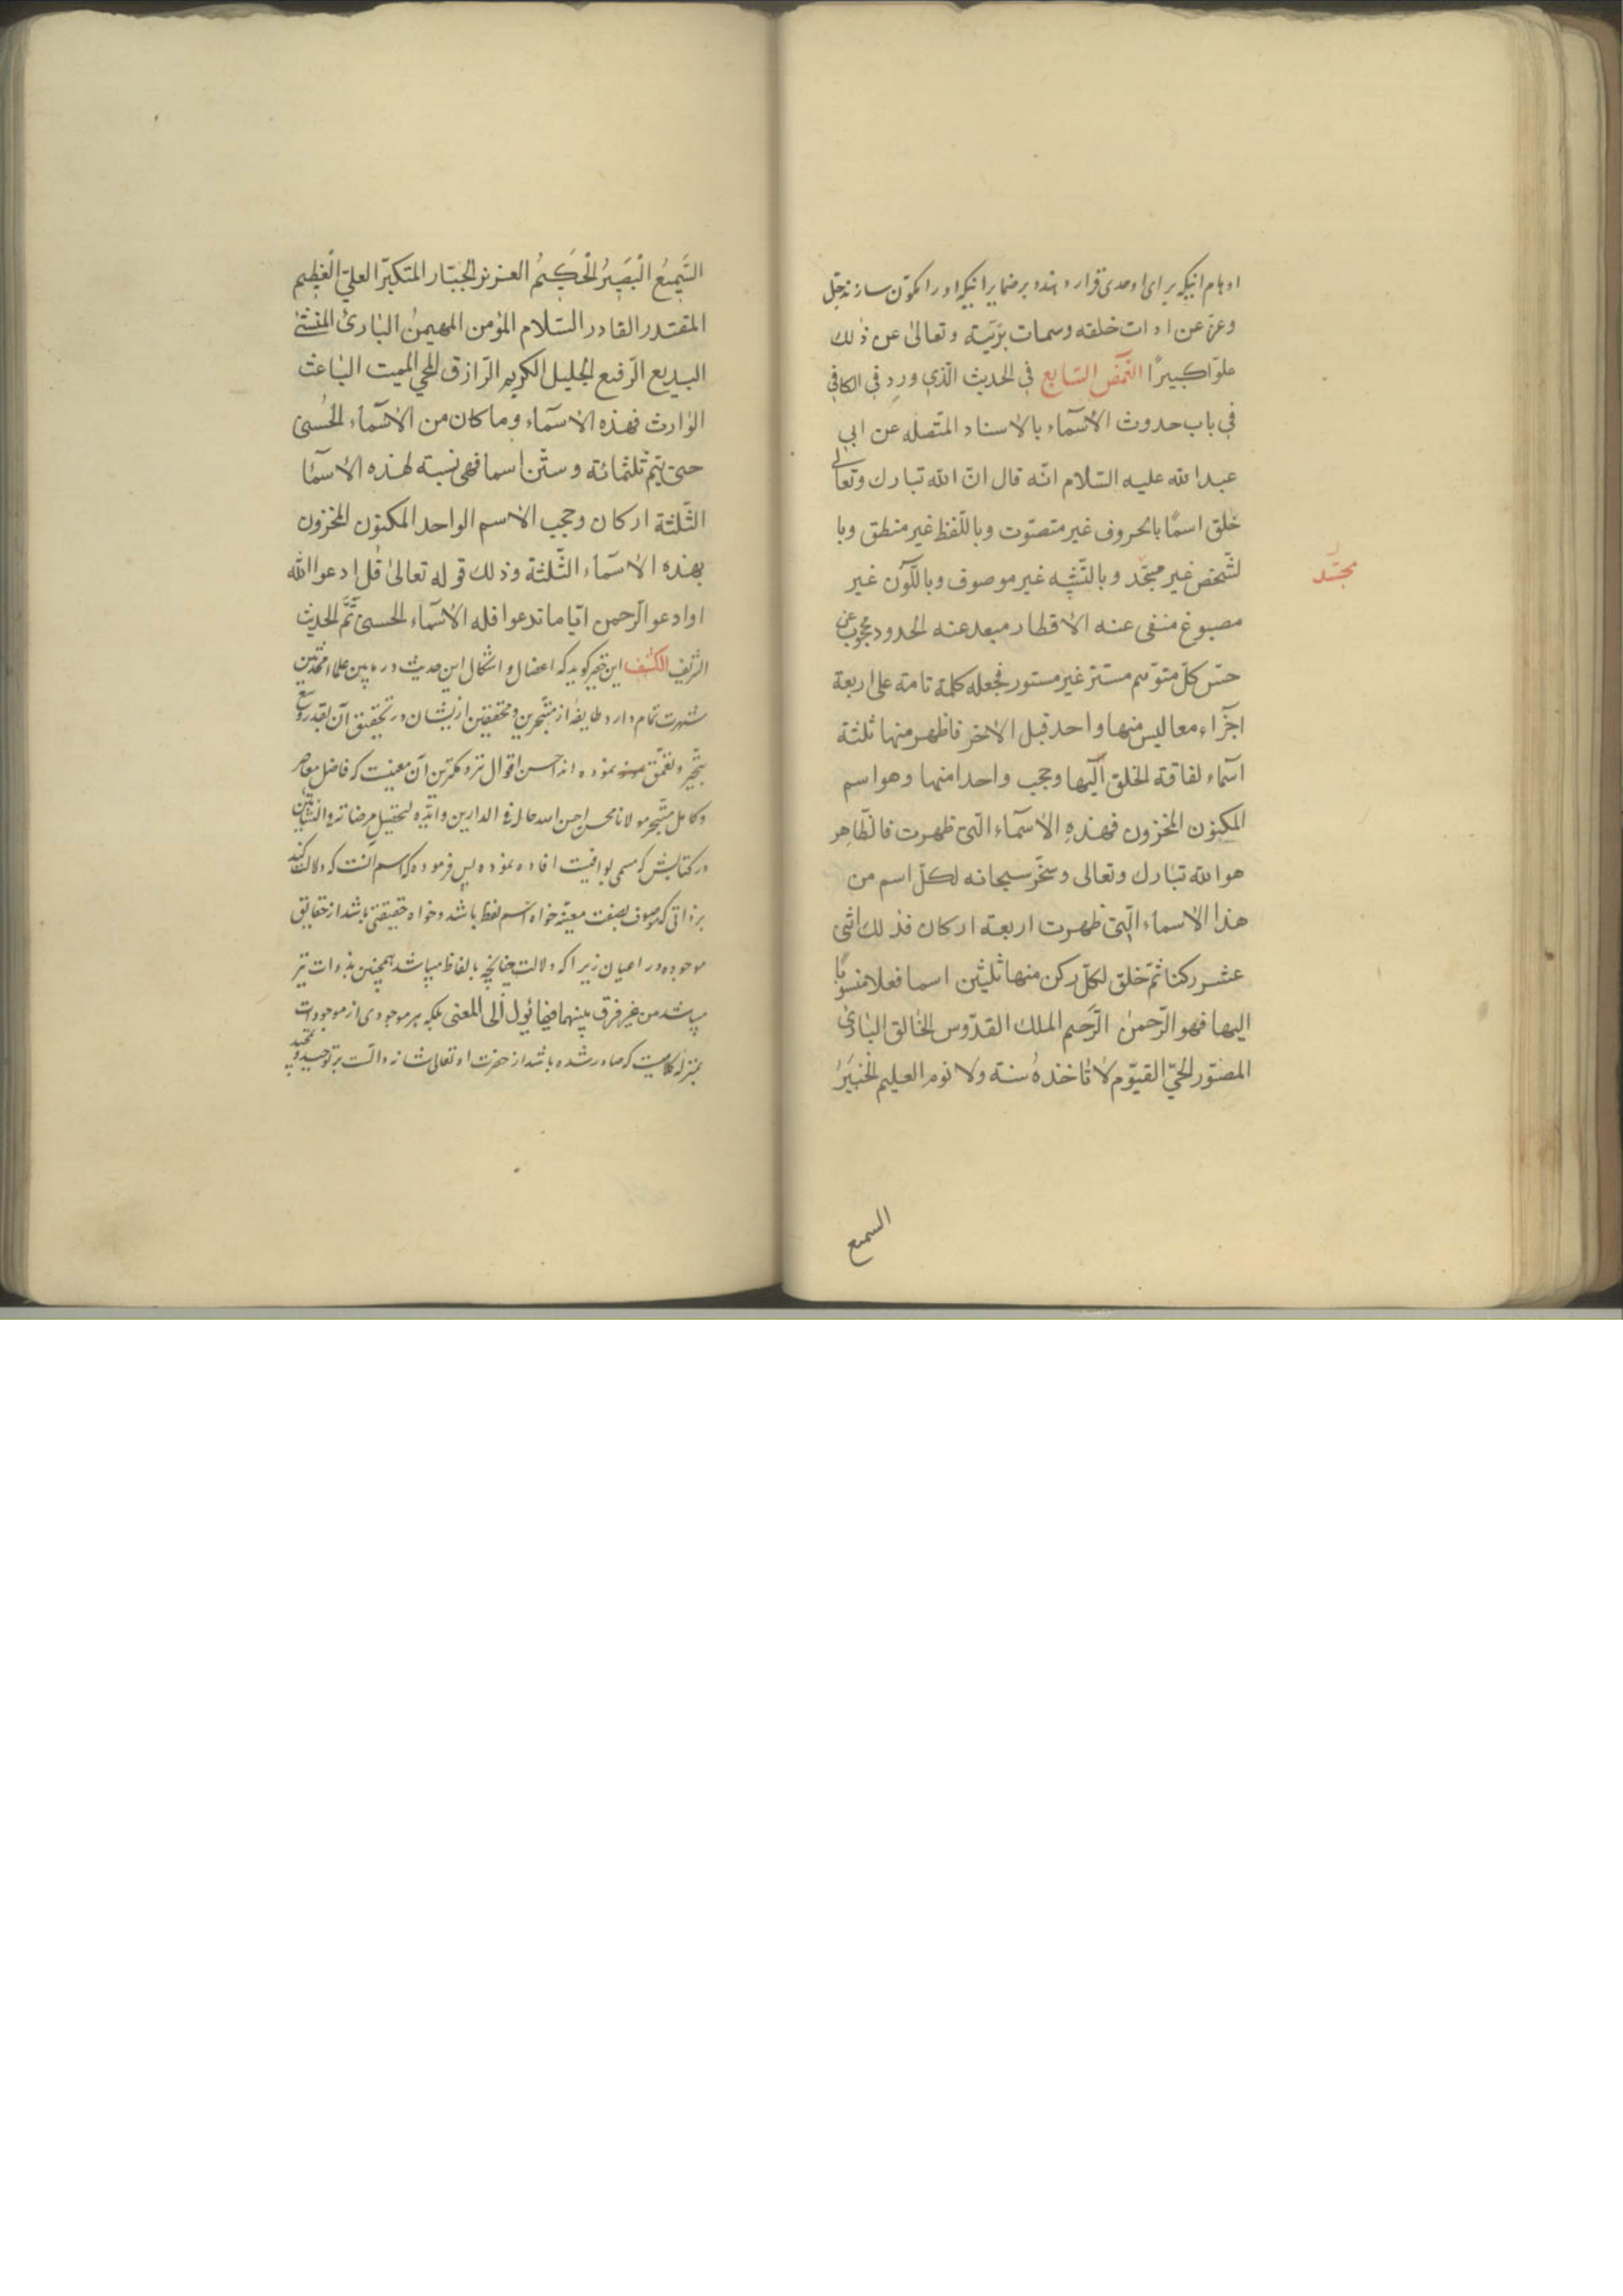 اوهام انیکه برای او حدی قرار دهند و بر ضمایر انیکه او را مکوّن سازند جلّ
وعزّ عن ادات خلقه وسمات بریّته وتعالیٰ عن ذٰلك
علوّا کبیرًا الغمض السّابع في الحدیث الّذي ورد في الکافي
في باب حدوث الأسمآء بالاسناد المتصله عن ابي
عبدالله علیه السّلام انّه قال انّ الله تبارك وتعالی
خلق اسمًا بالحروف غیر متصوّت وباللّفظ غیر منطق وبا
لشّخص غیر مجسّد وبالتّشبیه غیر موصوف وباللّون غیر
مجسّد
مصبوغ منفی عنه الاقطار مبعد عنه الحدود محجوب عن
حسّ کلّ متوّهم مستتر غیر مستور فجعله کلمة تامة علی اربعة
اجزآء معا لیس منها واحد قبل الاخر فاظهر منها ثلثة
اسمآء لفاقة الخلق الیها وحجب واحدا منها وهو اسم
المکنون المخزون فهذهِ الاسمآء الّتی ظهرت فالظّاهر
هو الله تبارك وتعالی وسخّر سبحانه لکلّ اسم من
هذا الاسماء الّتی ظهرت اربعة ارکان فذلك اثنی
عشر رکنا ثمّ خلق لکلّ رکن منها ثلثین اسما فعلا منسوبًا
الیها فهو الرّحمن الرّحیم الملك القدّوس الخالق البادئ
المصوّر الحيّ القیّوم لا تاخذهُ سنة ولا نوم العلیم الخبیر
السمیع
السَّمیعُ الْبَصیرُ الْحَکیمُ العزیز الجبّار المتکبّر العليّ الْعظیم
المقتدر القادر السّلام المؤمن المهیمن البارئ المنشئ
البدیع الرّفیع الجلیل الکریم الرّازق المحیي الممیت الباعث
الوارث فهذه الاسمآء وما کان من الاسمآء الحُسنیٰ
حتیٰ یتم ثلثمائة وستّین اسما فهی نسبة لهذه الأسمآ
الثّلثة ارکان وحجب الاسم الواحد المکنون المخزون
بهذه الاسمآء الثّلثة وذلك قوله تعالیٰ قُل ادعوا الله
اوادعو الرّحمن ایّا ما تدعوا فله الاسمآء الحسنیٰ تمَّ الحدیث
الشریف الکشف این حقیر کوید که اعضال و اشکال این حدیث در مابین علماء محدثین
شهرت تمام دارد و طایفهٔ از متبحّرین و محققین ازیشان در تحقیق آن بقدر وسع
تبحّر و تعمّق نموده اند احسن اقوال نزد کمترین آن معنیست که فاضل معاصر
وکامل متبحّر مولانا محسن احسن الله حاله في الدارین وایّده لتحصیل مرضاته في النشأتین
در کتابش که مسمی بوافیست افاده نموده پس فرموده که اسم انست که دلالت کند
بر ذاتی که موصوف بصفت معیّنه خواه اسم لفظ باشد و خواه حقیقتی باشد از حقایق
موجوده در اعیان زیرا که دلالت چنانچه بالفاظ میباشد همچنین بذوات نیز
میباشد من غیر فرق بینهما فیما یؤول الی المعنی بلکه هر موجودی از موجودات
بمنزله کلامیست که صادر شده باشد از حضرت او تعالی شانه دالست بر توحید و تمجید